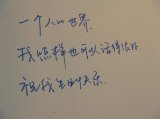 一个人的世界.
我照样也可以活得很好
祝我生日快乐